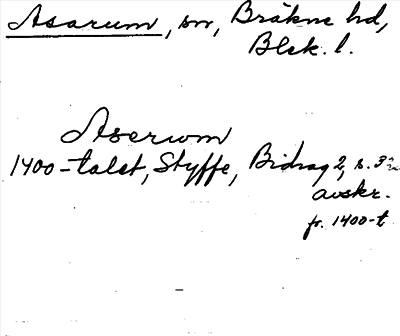 Asarum, sn, Bräkne hd,
Blek. l.
Aserwm
1400-talet, Styffe, Bidrag 2, s.
avskr.
fr. 1400-t